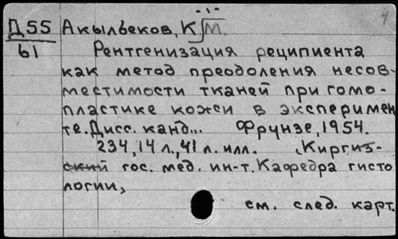 Д55 Акыльбеков, К М.
61
Рентгенизация реципиента
как метод преодоления несов-
местимости тканей при гомо-
пластике кожи в эксперимен
те. Дисс. канд... Фрунзе, 1954.
234, 14 л., 41 л. илл. (Киргиз-
ский гос. мед. ин-т. Кафедра гисто
логии,
см. след. карт.